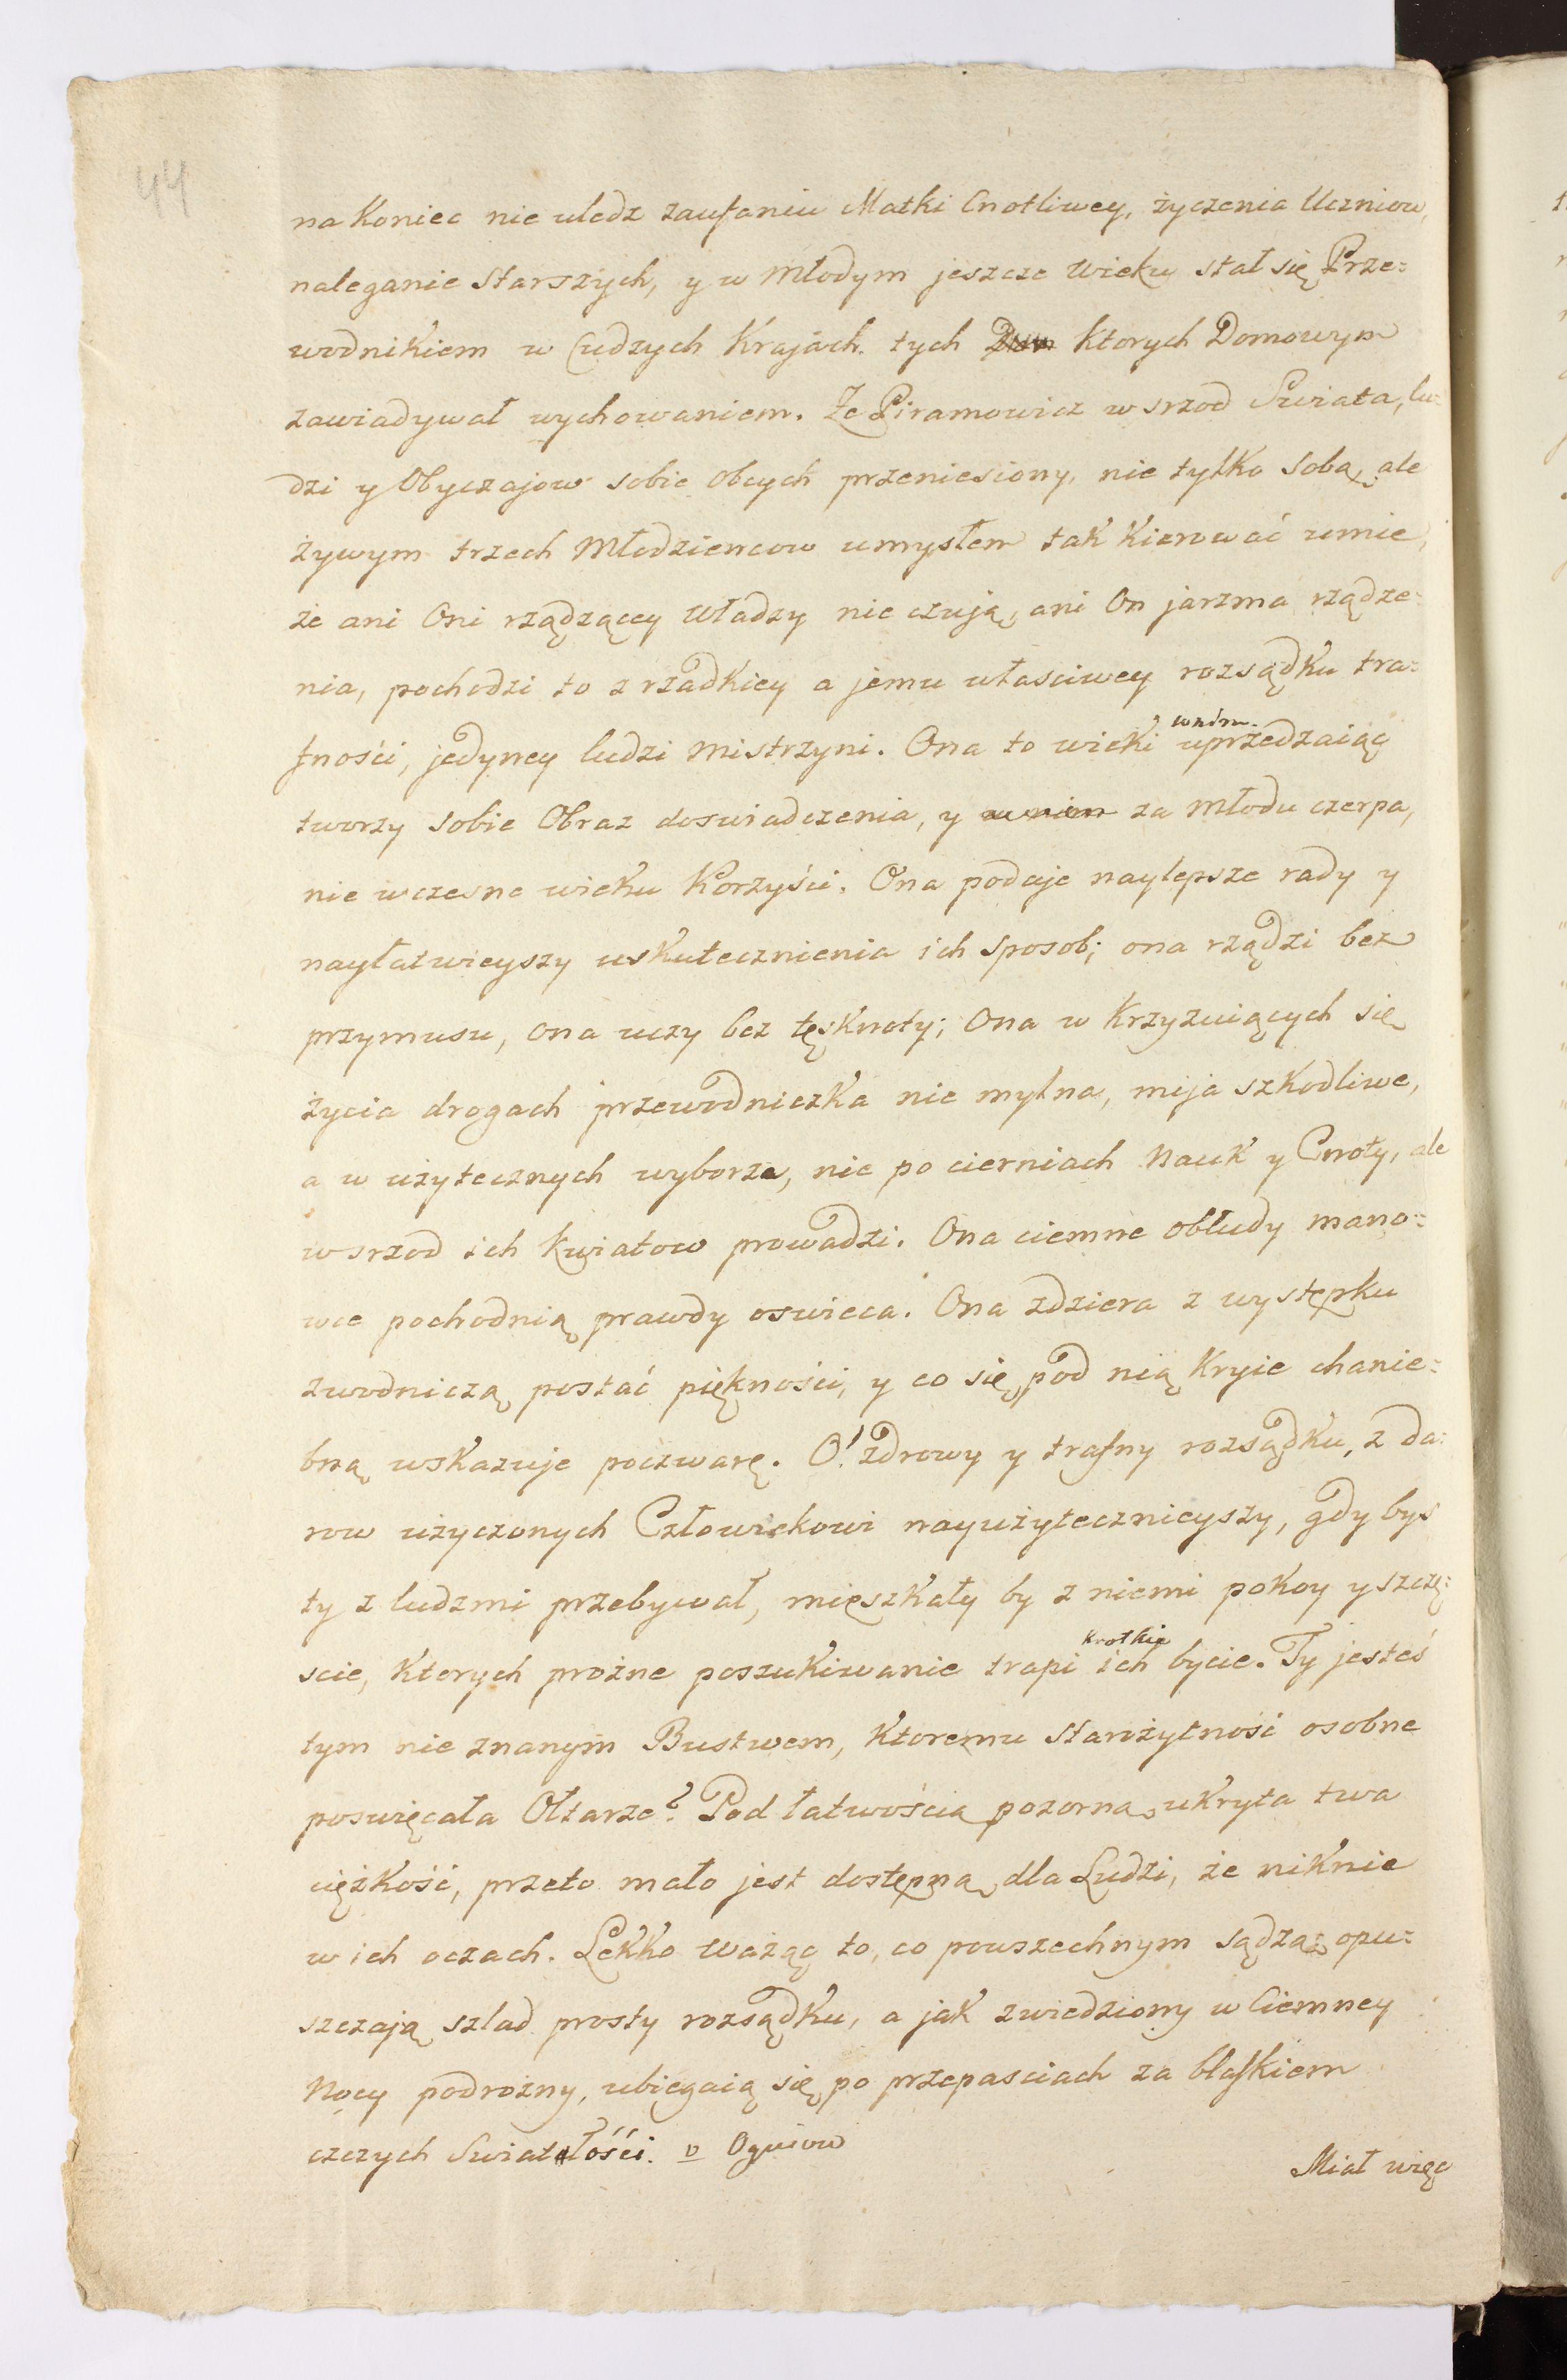 44
na Koniec nie uledz zaufaniu Matki Cnotliwey, życzenia Uczniow,
naleganie Starszych, y w Młodym jeszcze Wieku stał się Prze=
wodnikiem w Cudzych Krajach. tych ktorych Domowym
zawiadywał wychowaniem. Ze Piramowicz w srzod Swiata, lu=
dzi y Obyczajow sobie obcych przeniesiony, nie tylko sobą, ale
żywym trzech Młodziencow umysłem tak kierować umie,
że ani Oni rządzącey Władzy nie czują, ani On jarzma rządze=
nia, pochodzi to z rzadkiey a jemu własciwey rozsądku tra=
fności, jedyney ludzi Mistrzyni. Ona to wieki uprzedzaiąc
tworzy sobie Obraz doswiadczenia, y w nim za Młodu czerpa,
nie wczesne wieku Korzyści. Ona podaje naylepsze rady y
nayłatwieyszy uskutecznienia ich sposob; ona rządzi bez
przymusu, ona uczy bez tęsknoty; Ona w Krzyzuiących się
życia drogach przewodniczka nie mylna, mija szkodliwe,
a w użytecznych wyborze, nie po cierniach Nauk y Cnoty, ale
w srzod ich Kwiatow prowadzi. Ona ciemne obłudy mano=
wce pochodnią prawdy oswieca. Ona zdziera z występku
zwodniczą postać piękności, y co się pod nią Kryie chanie=
bną wskazuje poczwarę. O! zdrowy y trafny rozsądku, z da=
row użyczonych Człowiekowi nayużytecznieyszy, gdy bys
ty z ludzmi przebywał, mięszkały by z niemi pokoy y szczę=
scie, Ktorych prożne poszukiwanie trapi krotkie ich bycie. Ty jesteś
tym nie znanym Bustwem, Ktoremu Starożytność osobne
poswięcała Ołtarze? Pod łatwością pozorną ukryta twa
ciężkość, przeto mało jest dostępną dla Ludzi, że niknie
w ich oczach. Lekko Ważąc to, co powszechnym sądzą; opu=
szczają szlad prosty rozsądku, a jak zwiedziony w Ciemney
Nocy podrożny, ubiegaią się po przepasciach za blaskiem
czczych Swiatłości. Ogniow
Miał więc